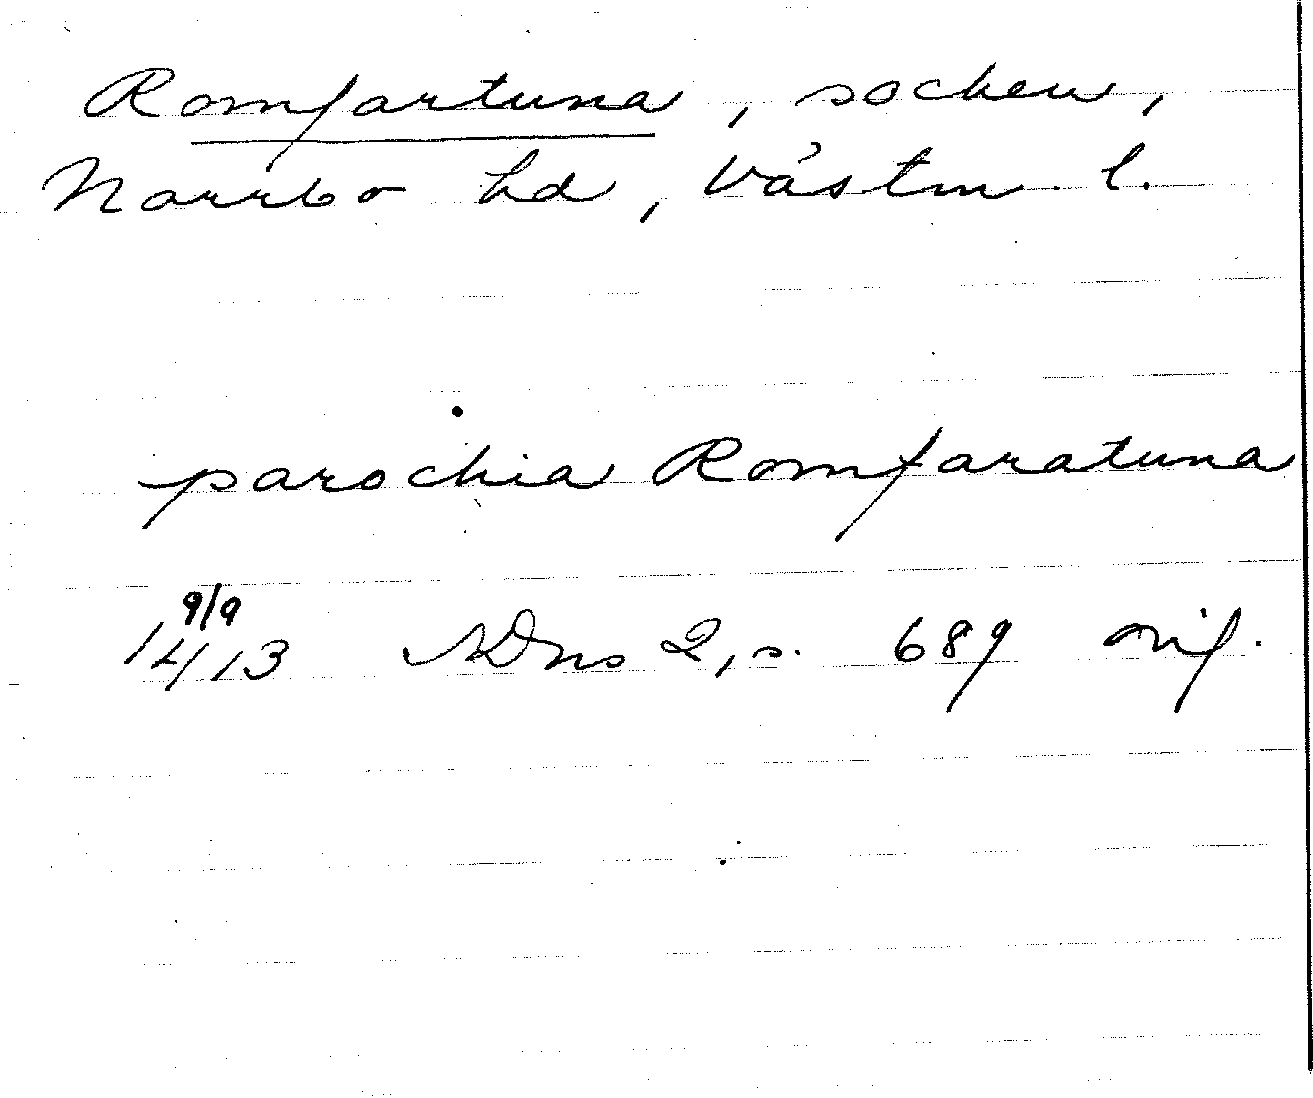 Romfartuna, socken,
Norrbo hd, Västm. l.
parochia Romfaratuna
9/9
1413 SDns 2, s. 689 orig.